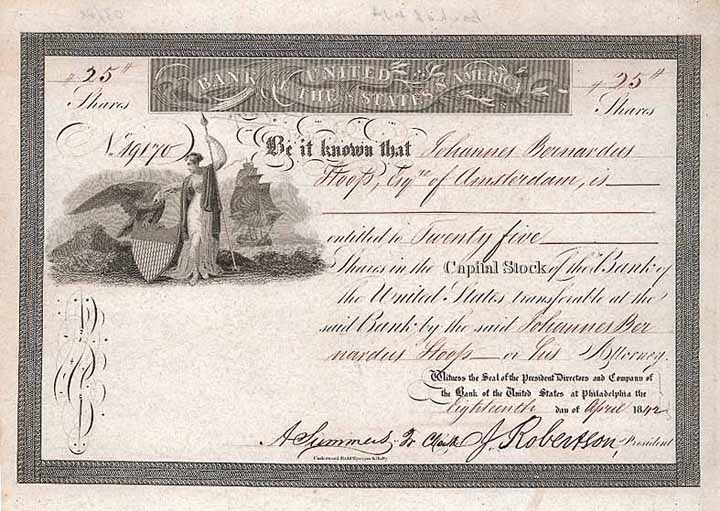 25
Shares
BANK OF THE UNITED STATES of AMERICA
25
Shares
No. 19170
Be it known that Johannes Bernardus
Stoop, Esqre of Amsterdam, is
entitled to Twenty five
Shares in the Capital Stock of the Bank of
the United States transferable at the
said Bank by the said Johannes Ber
nardus Stoop or his Attorney.
Witness the Seal of the President Directors and Company of
the Bank of the United States at Philadelphia the
Eighteenth day of April 1842
A Summers, Tr Clerk J. Robertson, President
Underwood Bald Spencer & Hufty